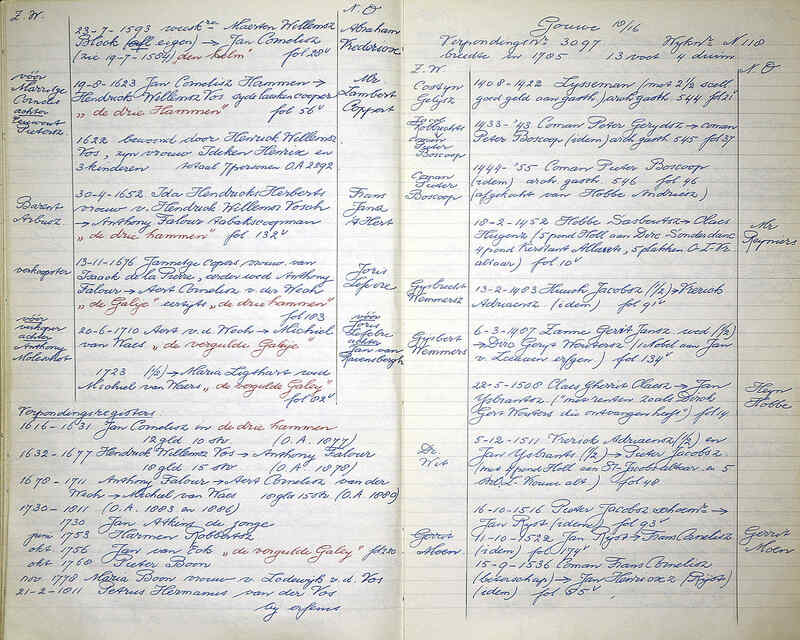 Z.W.
N.O
23-7-1593 weesk.re Maerten Willemsz
Blook (self eigen) → Jan Cornelisz
(zie 19-7-1584) "den helm" fol 20v
Abraham
Vredericxz
vóór
Marritge
Cornelis
achter
Pietersz
19-8-1623 Jan Cornelisz Hammen →
Hendrick Willemsz Vos sydelaeken cooper
"de drie Hammen" fol 56v
Mr
Lambert
Coppert
1622 bewoond door Henrick Willemsz
Vos, zijn vrouw Ideken Henrix en
3 kinderen totaal 7 personen O.A 2292
Barent
30-4-1652 Ida Hendricks Herberts
vrouw v. Hendrick Willemsz Vosch
→ Anthony Falour tabakscoopman
"de drie hammen" fol 132v
Frans
Jansz
verkoopster
13-11-1676 Jannetge Copas vrouw van
Isaack de la Pierre, eerder wed. Anthony
Falour → Aert Cornelisz v. der Wech
"de Galye" eertijts "de drie hammen"
fol 103
Joris
Lefevre
vóór
verkoper
achter
Anthony
Molenhof
20-6-1710 Aert v.d. Wech → Michiel
van Waes "de vergulde Galeje"
vóór
Joris
achter
Jan van
Ravensbergh
1723 (½) → Maria Ligthart wed
Michiel van Waers "de vergulde Galey"
fol 82v
Verpondingsregisters.
1616-1631 Jan Cornelisz in de drie hammen
12 gld 10 stv (O.A. 1877)
1632-1677 Hendrick Willemsz Vos → Anthony Falour
18 gld 15 stv (O.A. 1878)
1678-1711 Anthony Falour → Aert Cornelisz van der
Wech → Michiel van Waes 18 gld 15 stv (O.A. 1880)
1730-1811 (O.A. 1883 en 1886)
1730 Jan Atkins de jonge
juni 1753 Harmen Robbertsz
okt. 1756 Jan van Eck "de vergulde Galey"
okt 1760 Pieter Boon
nov 1778 Maria Boon vrouw v. Lodewijk v.d. Vos
21-2-1811 Petrus Hermanus van der Vos
by erfenis
Gouwe 10/16
Verpondingsnr 3097. Wyknr. N 118
breedte in 1785 13 voet 4 duim
Z.W
N.O
Costyn
Gelysz
1408-1422 Lysseman (met 2½ scell
goed geld aan gasth) arch gasth 544 fol 21
Jacob
Robbrechts
Coman
Pieter
Boscoop
1433-'43 Coman Peter Gerydsz → coman
Peter Boscoop (idem) arch gasth 545 fol 37
Coman
Pieter
Boscoop
1444-'55 Coman Pieter Boscoop
(idem) arch gasth 546 fol 46
(afgekocht van Hobbe Andriesz)
18-2-1452 Hobbe Dasbertsz → Claes
Huygensz (5 pond Holl aan Dirc Sonderdanc
4 pond Kerstant Allertsz, 5 plakken O-L-Vr
altaar) fol 10v
Mr
Reymers
Gysbrecht
Wemmersz
13-2-1483 Huych Jacobsz (½) → Vrerick
Adriaensz (idem) fol 91v
Gysbert
Wemmers
6-3-1487 Zanne Gerrit Jansz wed (½)
→ Dirc Gerys Woutersz (1 Nobel aan Jan
v. Leeuwen erfgen) fol 134v
22-5-1508 Claes Gherrit Claesz → Jan
Ysbrantsz (met renten zoals Dirck
Gert Wouters die ontvangen heeft) fol 4
Heyn
Hobbe
Dr.
Wit
5-12-1511 Vrerick Adriaensz (½) en
Jan Ysbrants (½) → Pieter Jacobsz
(met 4 pond Holl aan St-Jacobs altaar en 5
O.L-Vrouw alt) fol 48
16-10-1516 Pieter Jacobsz schoenr →
Jan Rijst (idem) fol 93v
Gerrit
Moen.
11-10-1522 Jan Rijst → Frans Cornelisz
(idem) fol 174v
Gerrit
Moen
15-9-1536 Coman Frans Cornelisz
(beterschap) → Jan Henricxz (Rijst)
(idem) fol 65v